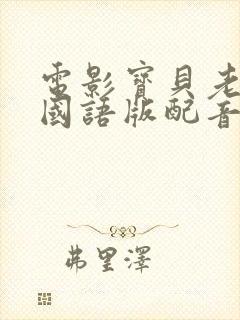 電影寶貝老
國語版配音
弗里澤